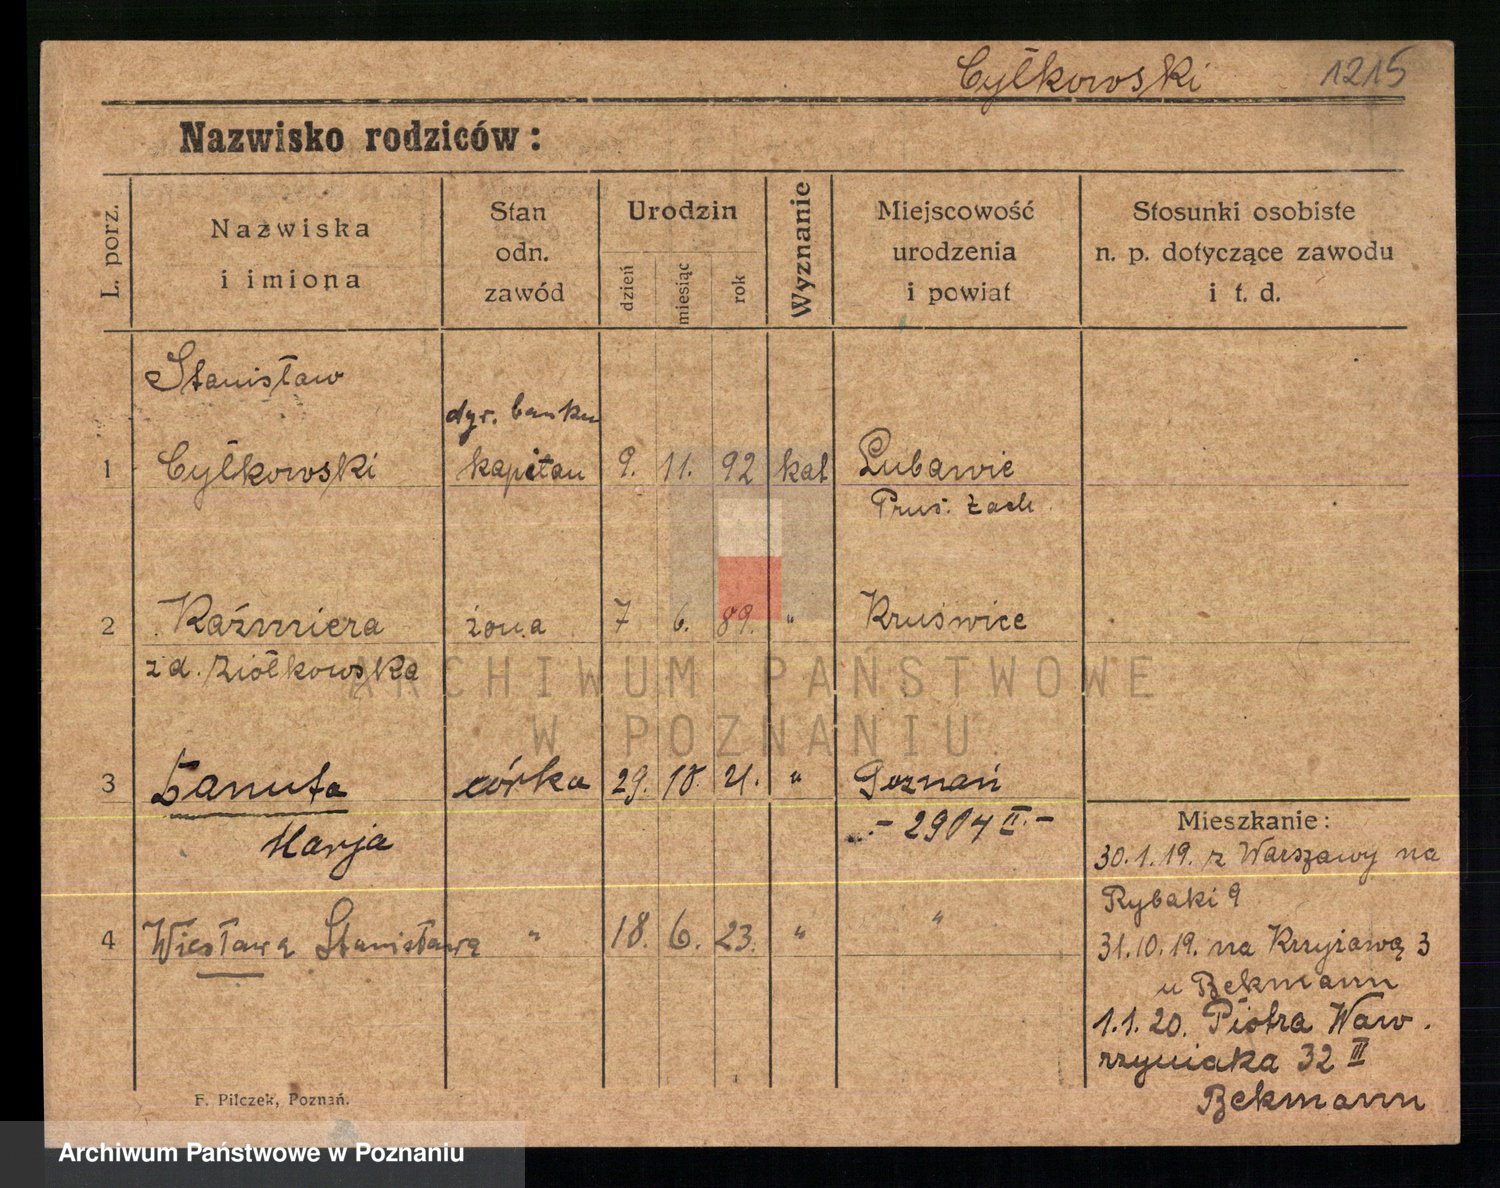 Cylkowski 1215
Nazwisko rodziców:
L. porz.
Nazwiska
i imiona
Stan
odn.
zawód
Urodzin
dzień
miesiąc
rok
Wyznanie
Miejscowość
urodzenia
i powiat
Stosunki osobiste
n. p. dotyczące zawodu
i t. d.
Stanisław
dyr. banku
1 Cyłkowski kapitan 9. 11. 92 kat Lubawie
Prus. Zach.
2 Kaźmiera żona 7 6. 89. " Kruświce
z d. Ziółkowska
ARCHIWUM PAŃSTWOWE
W POZNANIU
3 Danuta córka 29. 10. 21. " Poznań
- 2904 II. -
Marja
4 Wiesława Stanisława " 18. 6. 23. " "
Mieszkanie:
30.1.19. z Warszawy na
Rybaki 9
31.10.19. na Krzyżową 3
u Bekmann
1.1.20. Piotra Waw.
rzyniaka 32 III
Bekmann
F. Pilczek, Poznań.
Archiwum Państwowe w Poznaniu